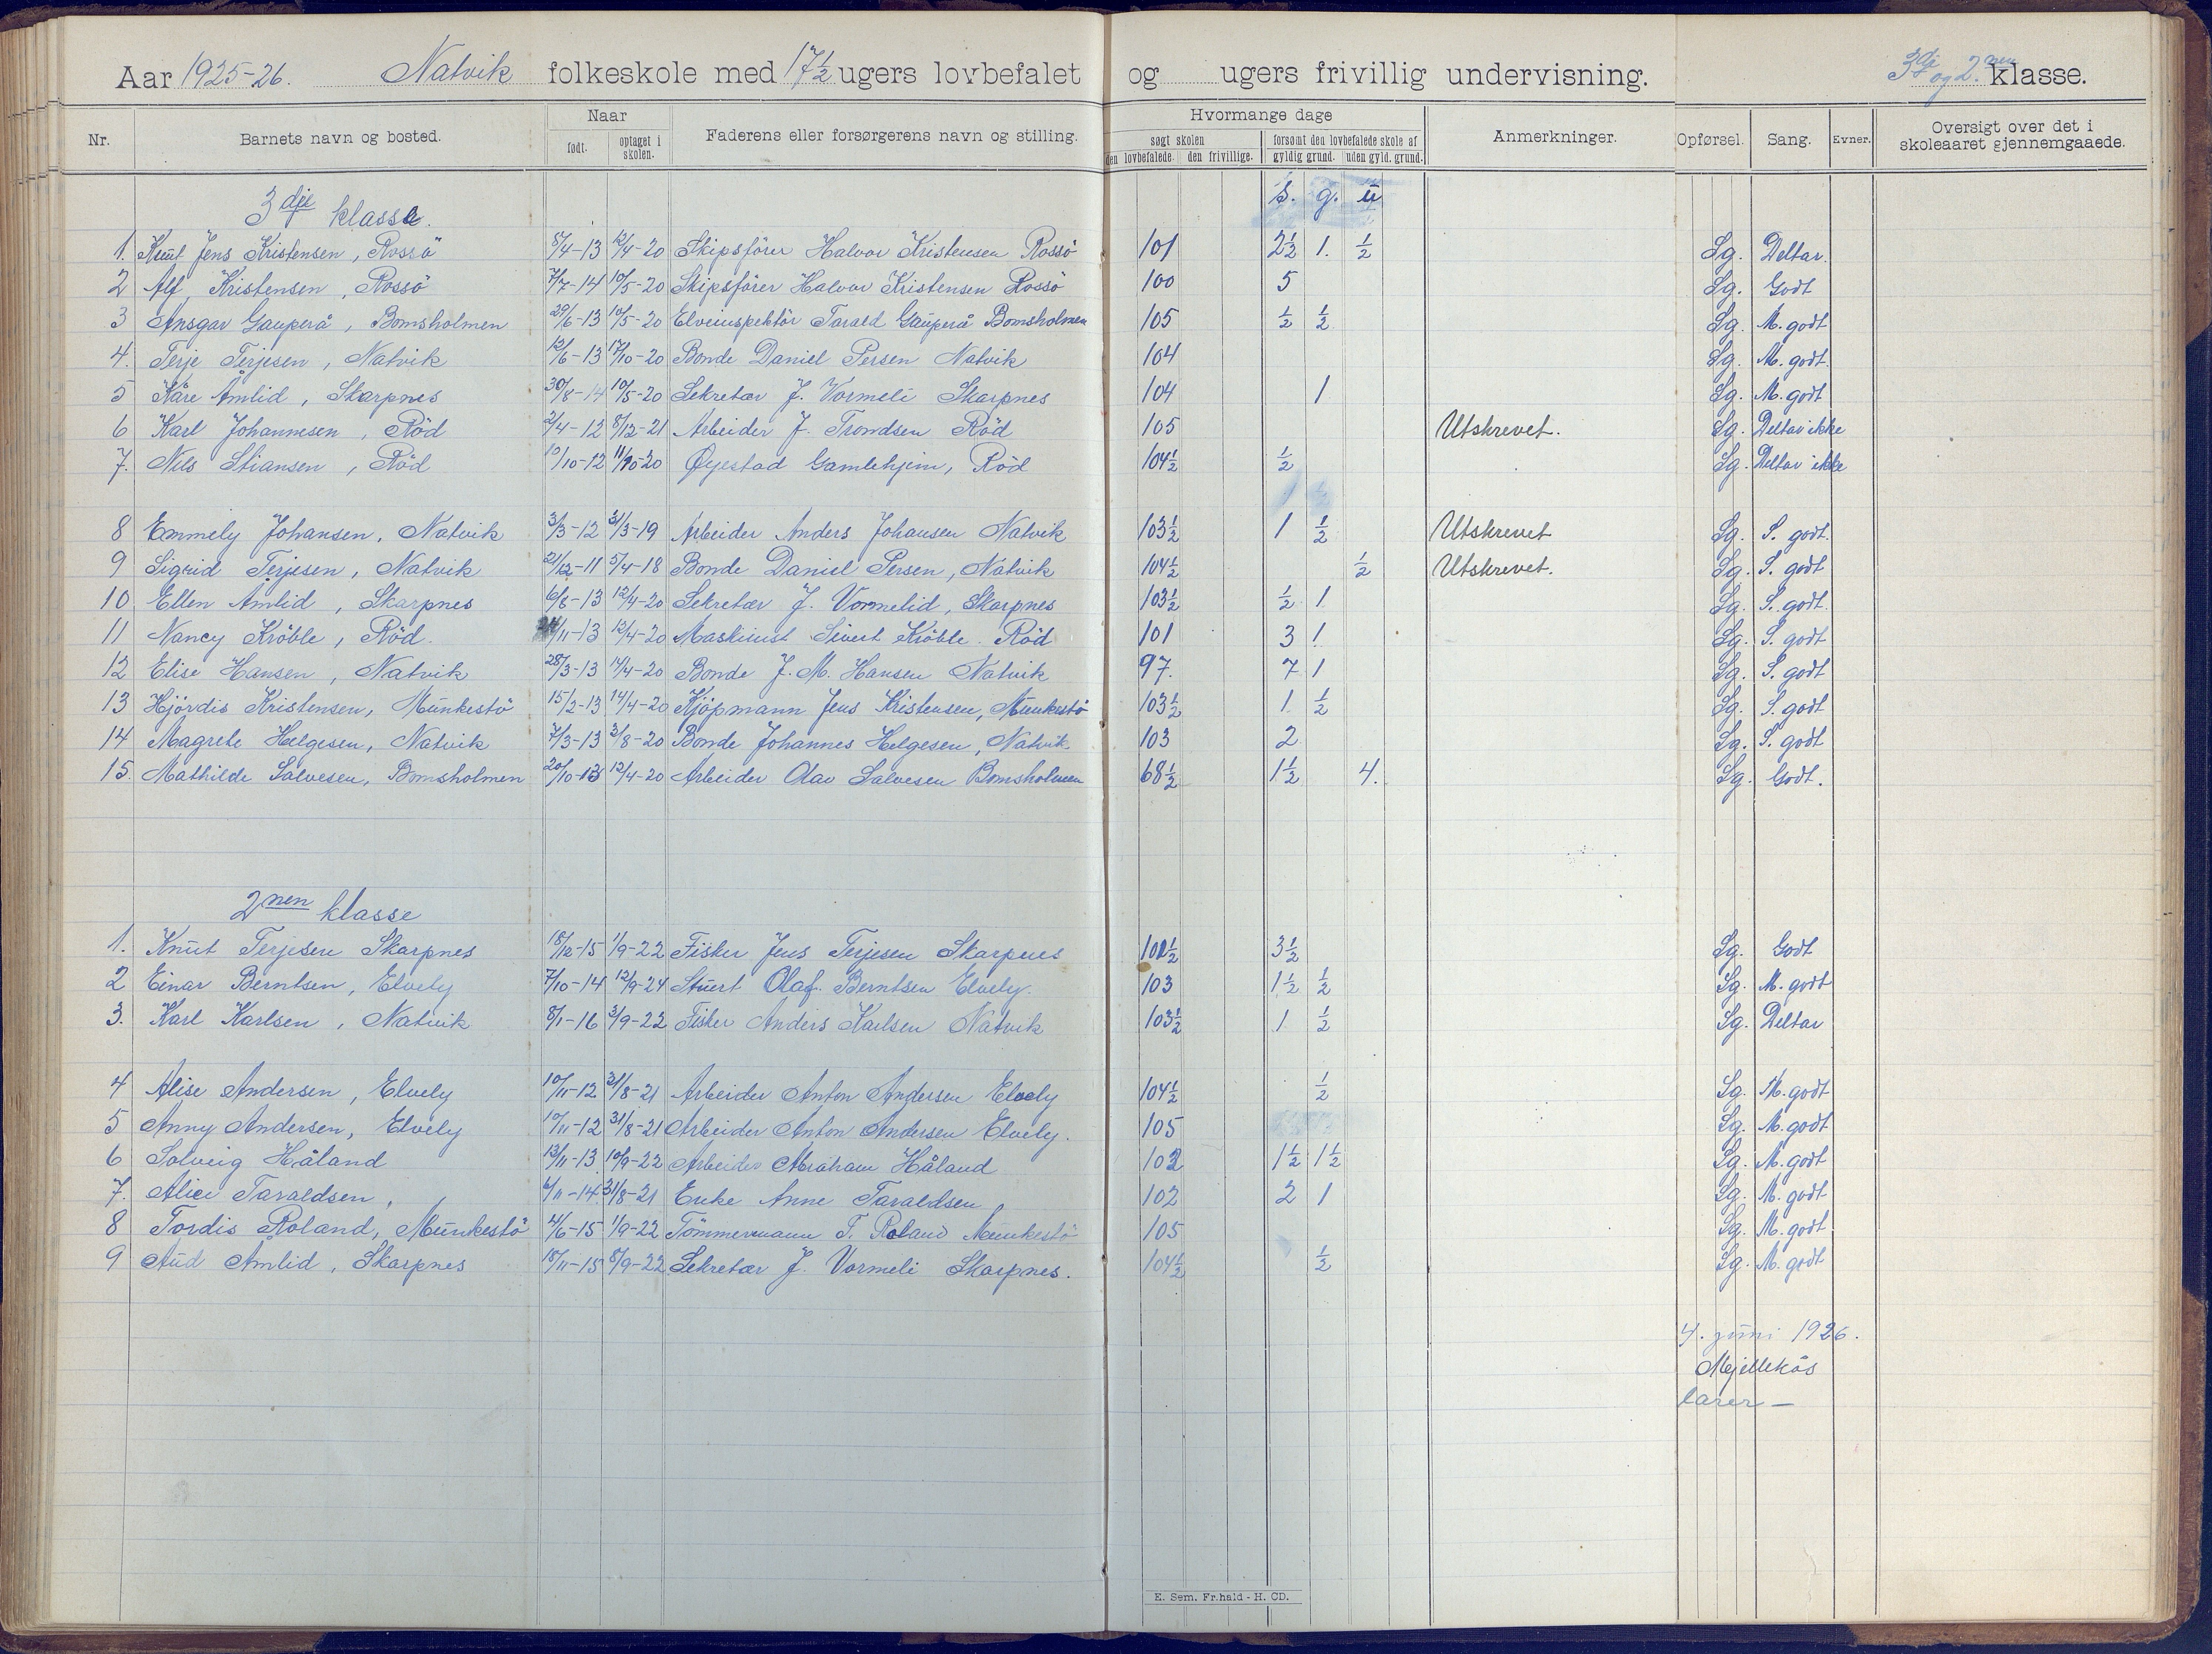 Aar 1925-26. Natvik folkeskole med 17½ ugers lovbefalet og ugers frivillig undervisning. 3dje og 2nen klasse.
Nr. Barnets navn og bosted. Naar født. optaget i skolen. Faderens eller forsørgerens navn og stilling. Hvormange dage søgt skolen den lovbefalede. den frivillige. forsømt den lovbefalede skole af gyldig grund. uden gyld. grund. Anmerkninger. Opførsel. Sang. Evner. Oversigt over det i skoleaaret gjennemgaaede.
3dje klasse. s. g. u
1. Knut Jens Kristensen, Rossö 8/4-13 12/4-20 Skipsförer Halvor Kristensen Rossö 101 2½ 1. ½ Sg. Deltar.
2 Alf Kristensen, Rossö 7/7-14 10/5-20 Skipsförer Halvor Kristensen Rossö 100 5 Sg. Godt
3 Ansgar Gauperå, Bomsholmen 29/6-13 10/5-20 Elveinspektör Tarald Gauperå Bomsholmen 105 ½ ½ Sg. M. godt
4. Terje Terjesen, Natvik 12/6-13 17/10-20 Bonde Daniel Persen Natvik 104 Sg. M. godt.
5 Kåre Åmlid, Skarpnes 30/8-14 10/5-20 Sekretær J. Vormeli Skarpnes 104 1 Sg. M. godt
6 Karl Johannesen, Röd 2/4-12 8/12-21 Arbeider J. Trondsen Röd 105 Utskrevet. Sg. Deltar ikke
7. Nils Stiansen, Röd 10/10-12 11/10-20 Øyestad Gamlehjem, Röd 104½ ½ Sg. Deltar ikke
8 Emmely Johansen, Natvik 3/3-12 31/3-19 Arbeider Anders Johansen Natvik 103½ 1 ½ Utskrevet Sg. S. godt.
9 Sigrid Terjesen, Natvik 21/12-11 5/4-18 Bonde Daniel Persen, Natvik 104½ ½ Utskrevet. Sg. S. godt
10 Ellen Åmlid, Skarpnes 6/8-13 12/4-20 Sekretær J. Vormelid, Skarpnes 103½ ½ 1 Sg. S. godt.
11 Nancy Kröble, Röd. /11-13 12/4-20 Maskinist Sivert Kröble. Röd 101 3 1 Sg. S. godt
12 Elise Hansen, Natvik 28/3-13 14/4-20 Bonde J. M. Hansen Natvik 97. 7 1 Sg. S. godt
13 Hjördis Kristensen, Munkestö 15/2-13 14/4-20 Kjöpmann Jens Kristensen, Munkestö 103½ 1 ½ Sg. S. godt
14 Magrete Helgesen, Natvik 7/3-13 3/8-20 Bonde Johannes Helgesen, Natvik 103 2 Sg. S. godt
15. Mathilde Salvesen, Bomsholmen 20/10-13 12/4-20 Arbeider Olav Salvesen Bomsholmen 68½ 1½ 4. Sg. Godt.
2nen klasse
1. Knut Terjesen Skarpnes 18/12-15 1/9-22 Fisker Jens Terjesen Skarpnes 101½ 3½ Sg. Godt
2 Einar Berntsen, Elvely 7/10-14 12/9-24 Stuert Olaf. Berntsen Elvely. 103 1½ ½ Sg. M. godt
3. Karl Karlsen, Natvik 8/1-16 3/9-22 Fisker Anders Karlsen Natvik 103½ 1 ½ Sg. Deltar
4 Alise Andersen, Elvely 10/11-12 31/8-21 Arbeider Anton Andersen Elvely 104½ ½ Sg. M. godt
5 Anny Andersen, Elvely 10/11-12 31/8-21 Arbeider Anton Andersen Elvely. 105 Sg. M. godt
6 Solveig Håland 13/11-13 10/9-22 Arbeider Abraham Håland 102 1½ 1½ Sg. M. godt
7. Alice Taraldsen, 6/11-14 31/8-21 Enke Anne Taraldsen 102 2 1 Sg. M. godt
8 Tordis Roland, Munkestö 4/6-15 1/9-22 Tömmermann T. Roland Munkestö 105 Sg. M. godt
9 Aud Åmlid, Skarpnes 18/11-15 8/9-22 Sekretær J. Vormeli Skarpnes. 104½ ½ Sg. M. godt
4. juni 1926.
Mjellekås
lærer —
E. Sem. Fr.hald - H. CD.